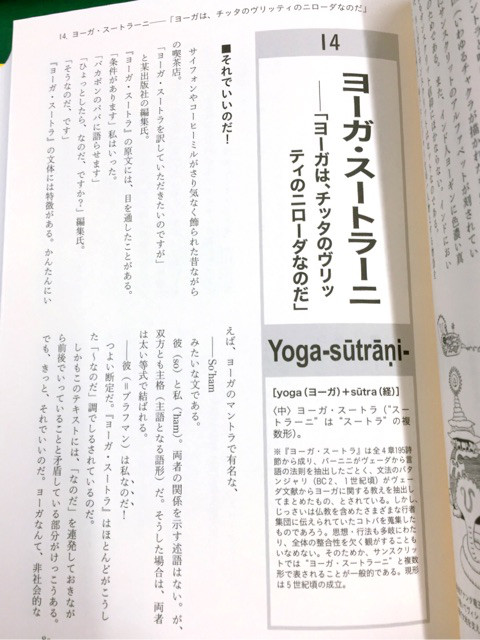 14. ヨーガ・スートラーニ――「ヨーガは、チッタのヴリッティのニローダなのだ」
14
ヨーガ・スートラーニ
――「ヨーガは、チッタのヴリッ
ティのニローダなのだ」
Yoga-sūtrāṇi-
[yoga（ヨーガ）＋sūtra（経）]
〈中〉ヨーガ・スートラ（“スー
トラーニ”は“スートラ”の複
数形）。
※『ヨーガ・スートラ』は全４章195詩
節から成り、パーニニがヴェーダから言
語の法則を抽出したごとく、文法のパタ
ンジャリ（BC２、１世紀頃）がヴェー
ダ文献からヨーガに関する教えを抽出し
てまとめたもの、とされている。しかし、
じっさいは仏教を含めたさまざまな行者
集団に伝えられていたコトバを蒐集した
ものであろう。思想・行法も多岐にわた
り、全体の整合性を欠く観がすることも
いなめない。そのためか、サンスクリッ
トでは“ヨーガ・スートラーニ”と複数
形で表されることが一般的である。現形
は５世紀頃の成立。
■それでいいのだ！
サイフォンやコーヒーミルがさり気なく飾られた昔ながら
の喫茶店。
「ヨーガ・スートラを訳していただきたいのですが」
と某出版社の編集氏。
『ヨーガ・スートラ』の原文には、目を通したことがある。
「条件があります」私はいった。
「バカボンのパパに語らせます」
「ひょっとしたら、なのだ、ですか？」編集氏。
「そうなのだ、です」
『ヨーガ・スートラ』の文体には特徴がある。かんたんにい
えば、ヨーガのマントラで有名な、
――So'ham
みたいな文である。
彼（so）と私（'ham）。両者の関係を示す述語はない。が、
双方とも主格（主語となる語形）だ。そうした場合は、両者
は太い等式で結ばれる。
――彼（＝ブラフマン）は私なのだ！
つよい断定だ。『ヨーガ・スートラ』はほとんどがこうし
た「～なのだ」調でしるされているのだ。
しかもこのテキストには、「なのだ」を連発しておきなが
ら前後でいっていることと矛盾している部分がけっこうある。
でも、きっと、それでいいのだ。ヨーガなんて、非社会的な